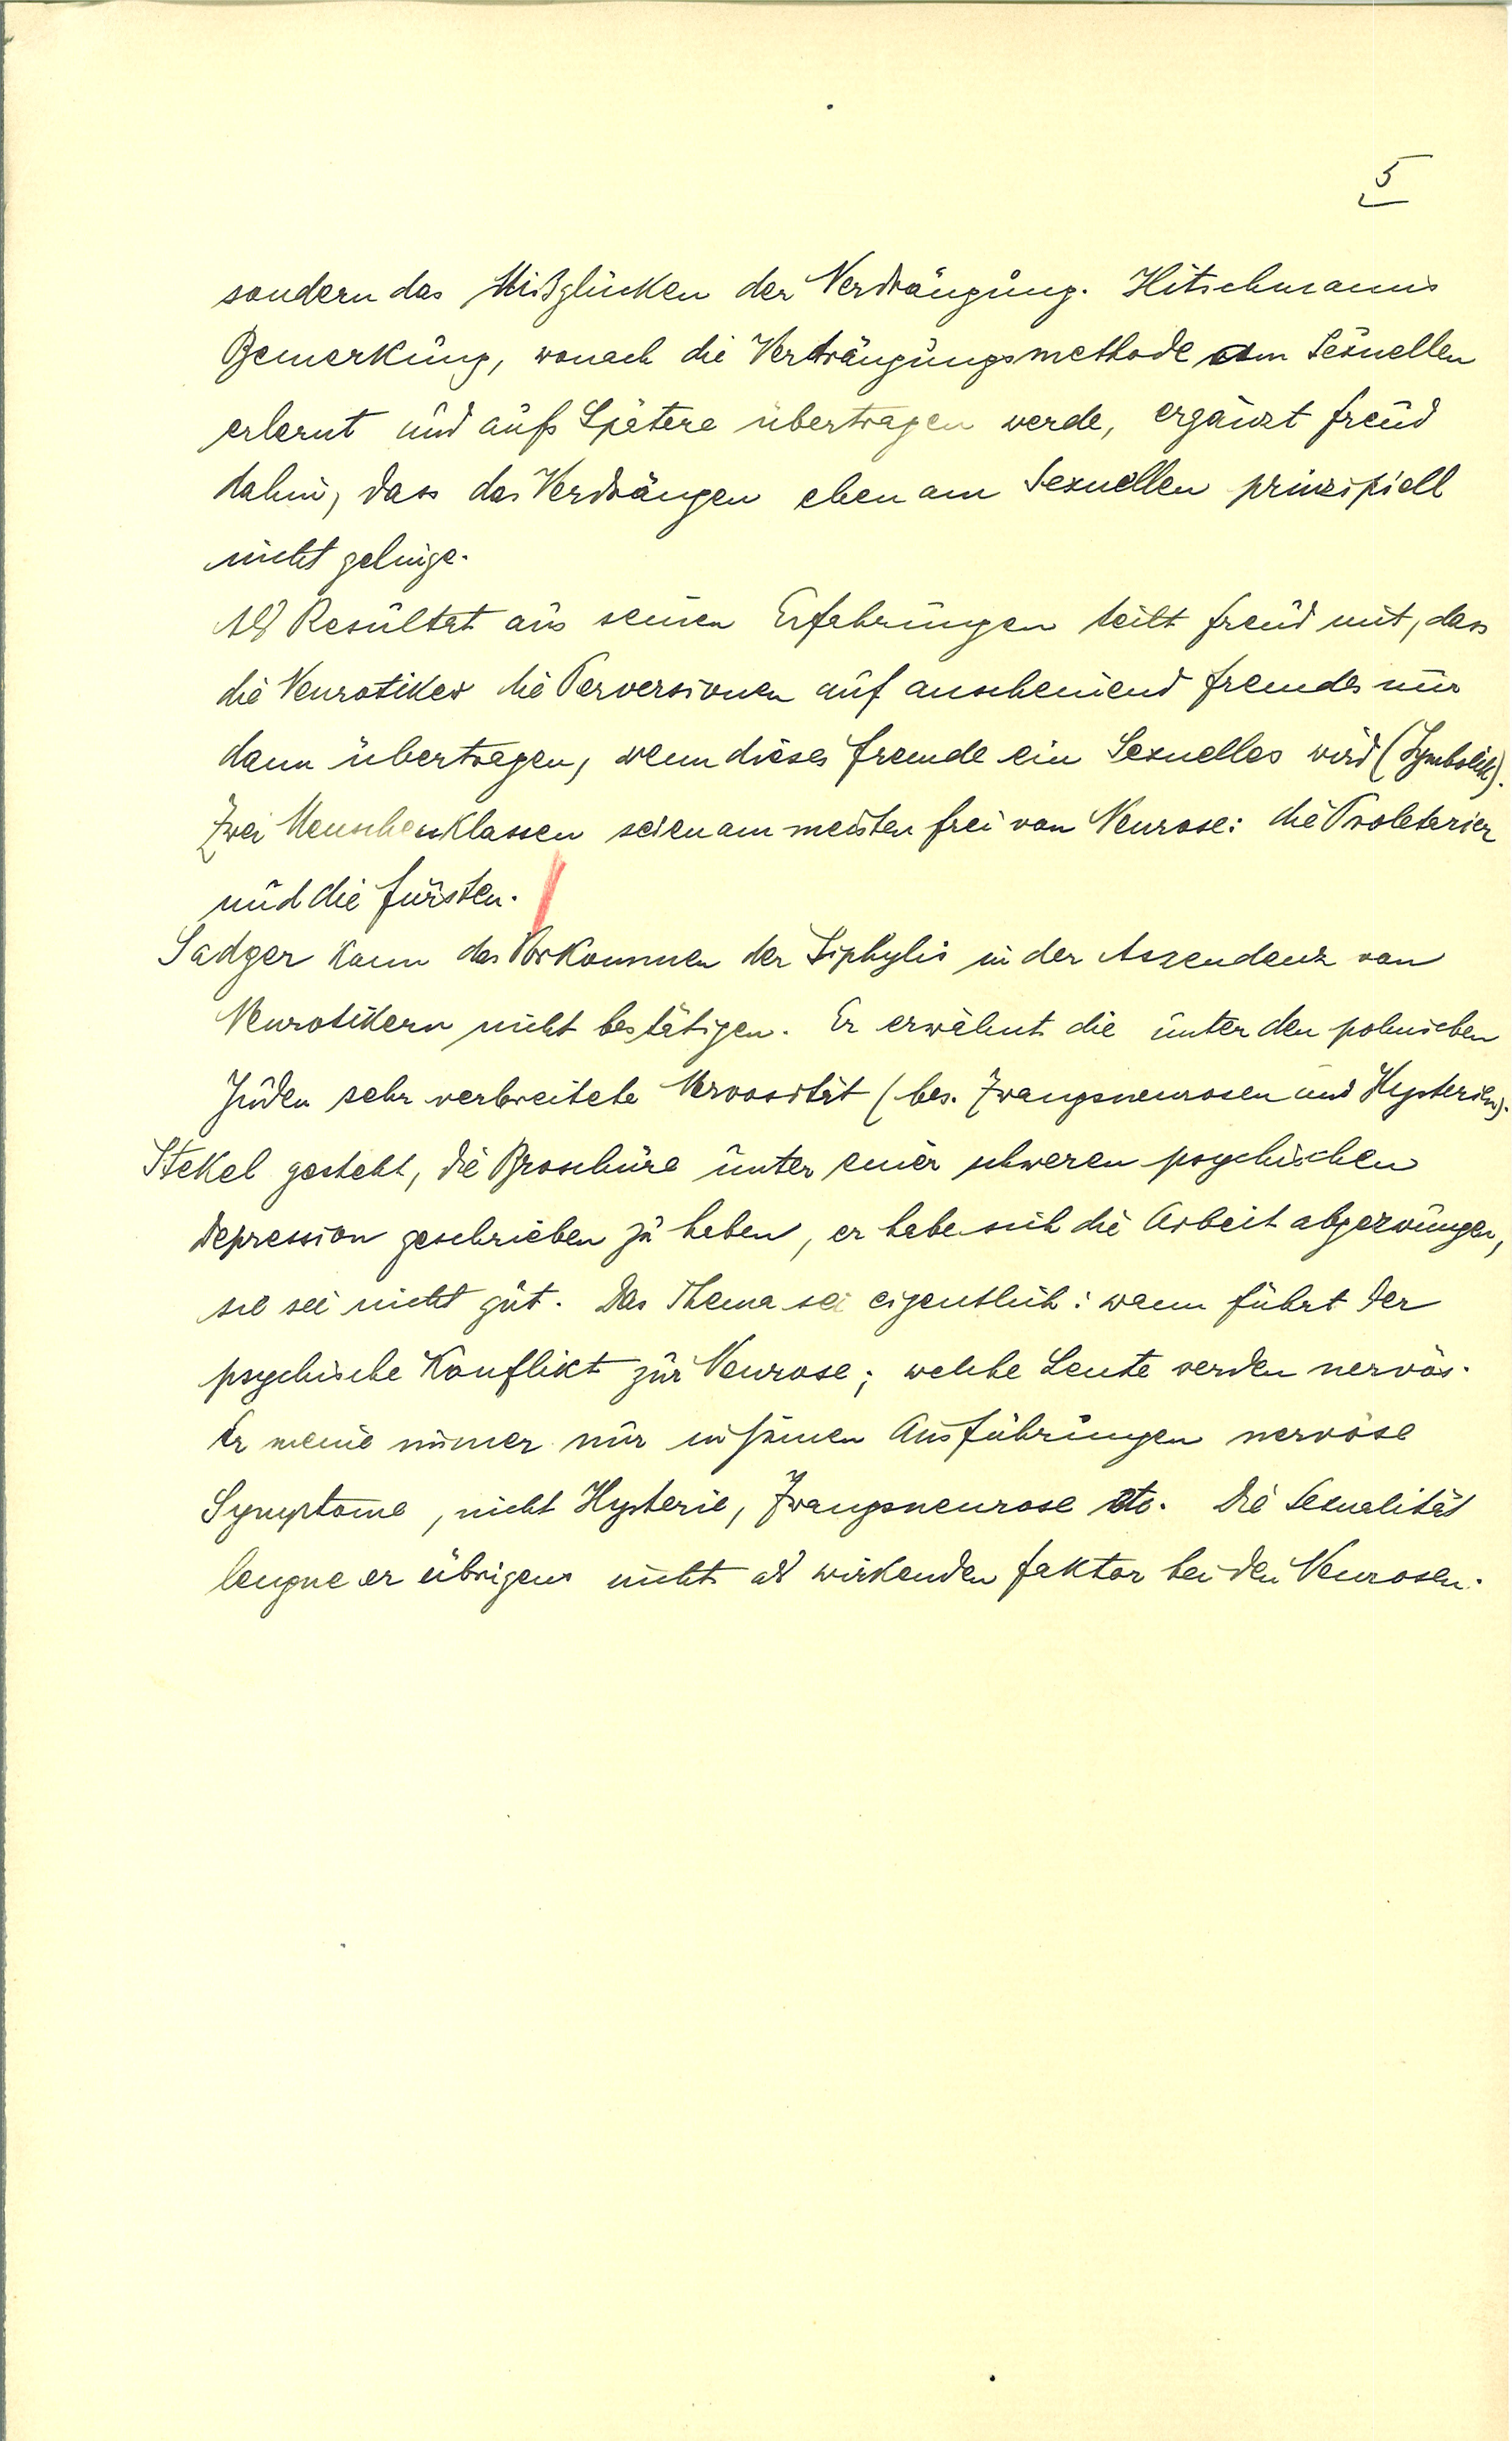 5
sondern das Mißglücken der Verdrängung. Hitschmanns
Bemerkung, wonach die Verdrängungsmethode am Sexuellen
erlernt und aufs Spätere übertragen werde, ergänzt Freud
dahin, dass das Verdrängen eben am Sexuellen prinzipiell
nicht gelinge.
Als Resultat aus seinen Erfahrungen teilt Freud mit, dass
die Neurotiker die Perversionen auf anscheinend Fremdes nur
dann übertragen, wenn dieses Fremde ein Sexuelles wird (Symbolik).
Zwei Menschenklassen seien am meisten frei von Neurose: die Proletarier
und die Fürsten.
Sadger kann das Vorkommen der Siphylis in der Aszendenz von
Neurotikern nicht bestätigen. Er erwähnt die unter den polnischen
Juden sehr verbreitete Nervosität (bes. Zwangsneurosen und Hysterien).
Stekel gesteht, die Broschüre unter einer schweren psychischen
Depression geschrieben zu haben, er habe sich die Arbeit abgezwungen,
sie sei nicht gut. Das Thema sei eigentlich: wann führt der
psychische Konflikt zur Neurose; welche Leute werden nervös.
Er meine immer nur in seinen Ausführungen nervöse
Symptome, nicht Hysterie, Zwangsneurose etc. Die Sexualität
leugne er übrigens nicht als wirkenden Faktor bei den Neurosen.